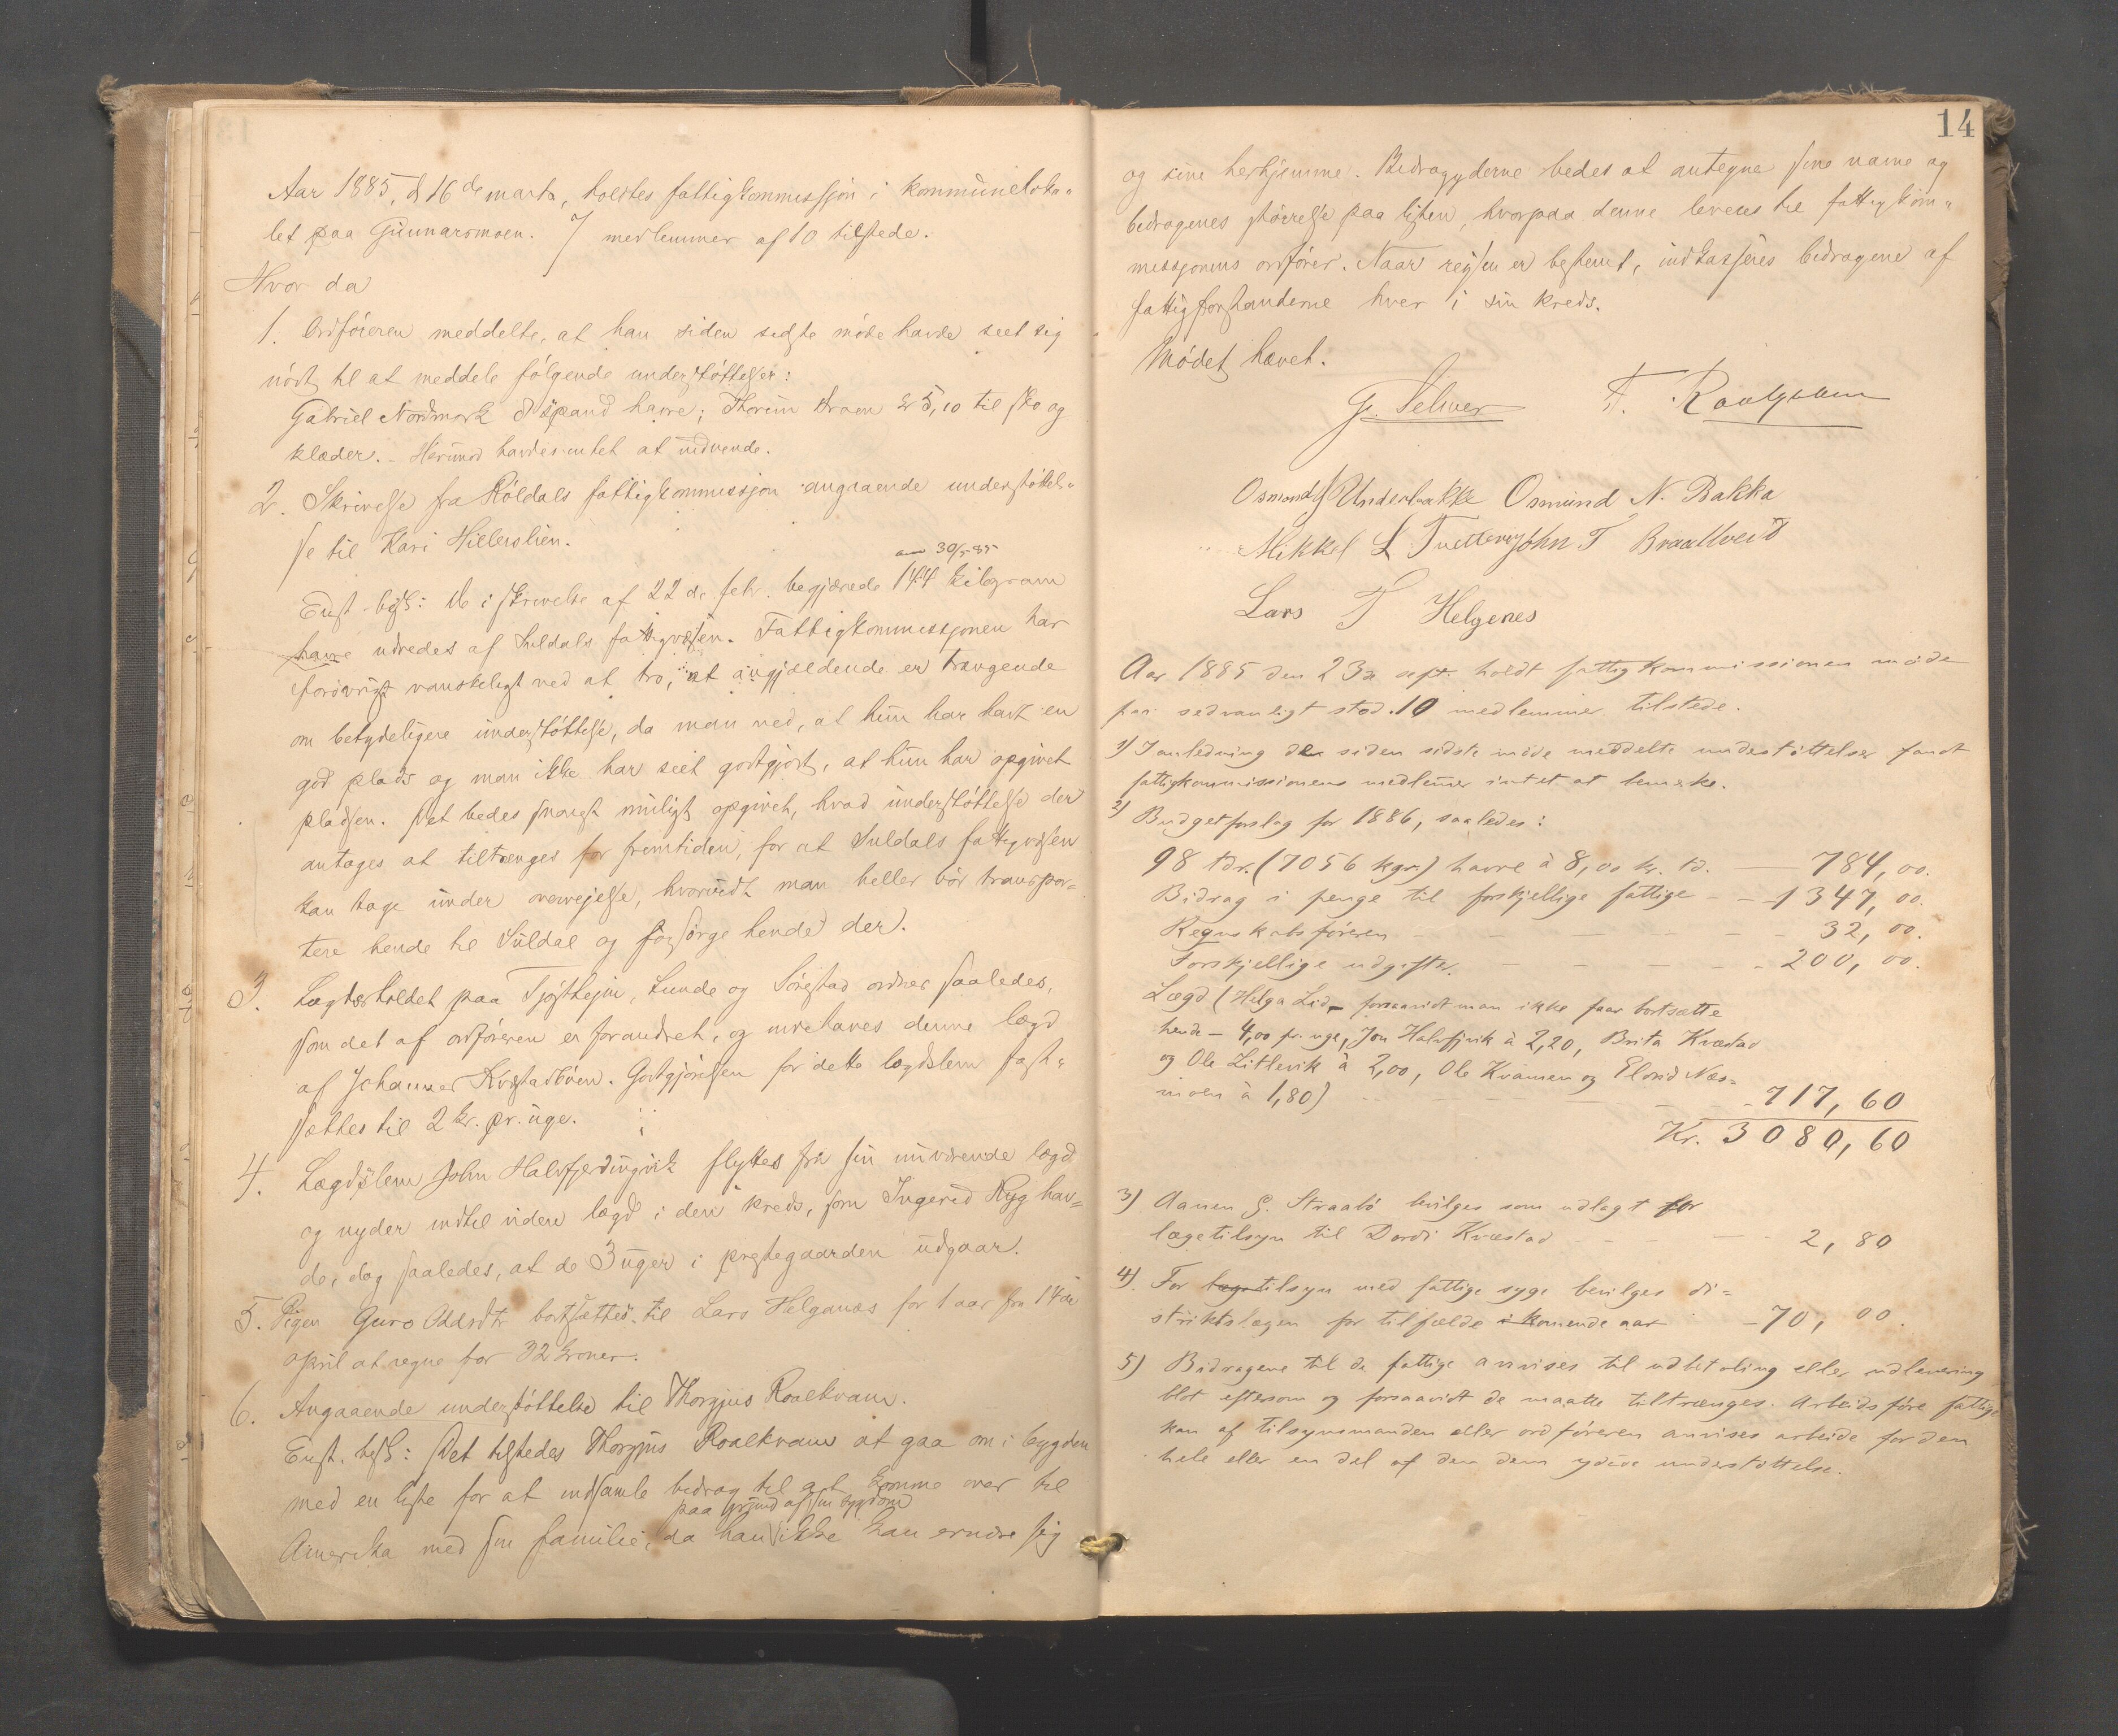 Aar 1885, d 16de marts, holdtes fattigkommissjon i kommuneloka-
let paa Gunnarsmoen. 7 medlemmer af 10 tilstede.
Hvor da
1. Ordføreren meddelte, at han siden sidste møde havde seet sig
nødt til at meddele følgende understøttelser:
Gabriel Nordmork spand havre; Thorein kr 5,10 til sko og
klæder. - Herimod havdes intet at indvende.
2. Skrivelse fra Røldals fattigkommissjon angaaende understøttel-
se til Kari Hillerslien.
30/5 85
Enst. besl: De i skrivelse af 22de febr. begjærede 144 kilogram
havre udredes af Suldals fattigvæsen. Fattigkommissjonen har
forøvrigt vanskeligt ved at tro, at angjældende er trængende
om betydeligere understøttelse, da man ved, at hun har havt en
god plads og man ikke har seet godtgjort, at hun har opgivet
pladsen. Det bedes snarest muligt opgivet, hvad understøttelse der
antages at tiltrænges for fremtiden, for at Suldals fattigvæsen
kan tage under overvejelse, hvorvidt man heller bør transpor-
tere hende til Suldal og forsørge hende der.
3. Lægdsholdet paa Tjøstheim, Lunde og Sørestad ordnes saaledes,
som det af ordføreren er forandret, og inretaves denne lægd
af Johannes Kvæstadbøen. Godtgjørelsen for dette lægdslem fast-
sættes til 2 kr. pr. uge.
4. Lægdslem John Halvfjerdingvik flyttes fra sin nuværende lægd
og nyder indtil videre lægd i den kreds, som Ingerid Ryg hav-
de, dog saaledes, at de 3 uger i prestegaarden udgaar.
5. Pigen Guro Oddsdtr bortsættes til Lars Helganæs for 1 aar fra 14de
april at regne for 32 kroner.
6. Angaaende understøttelse til Thorgjus Roalkvam.
Enst. besl: Det tilstedes Thorgjus Roalkvam at gaa om i bygden
med en liste for at indsamle bidrag til at komme over til
paa grund af sin sygdom
Amerika med sin familie, da han ikke kan ernære sig
14
og sine herhjemme. Bidragyderne bedes at antegne sine navne og
bidragenes størrelse paa listen, hvorpaa denne leveres til fattigkom-
missjonens ordfører. Naar rejsen er bestemt, indkasseres bidragene af
fattigforstanderne hver i sin kreds.
Mødet hævet.
G. Selmer T. Roalkvam
Osmond Underbakke Osmund N. Bakka
Mikkel L Tvetteraas John T Braatveid
Lars T Helgenes
Aar 1885 den 23de sept. holdt fattigkommissionen møde
paa sedvanligt sted. 10 medlemmer tilstede.
1) I anledning de siden sidste møde meddelte understøttelser fandt
fattigkommissionens medlemmer intet at bemerke.
2) Budgetforslag for 1886, saaledes:
98 tdr. (7056 kgr.) havre à 8,00 kr. td. 784,00.
Bidrag i penge til forskjellige fattige - - 1347,00.
Regnskabsføreren - - - - - 32,00.
Forskjellige udgifter. - - - - 200,00.
Lægd (Helga Lid - forsaavidt man ikke faar bortsatte
hende - 4,00 pr. uge, Jon Halvfjvik à 2,20, Brita Kvæstad
og Ole Litlevik à 2,00, Ole Kvamen og Elovid Næs-
moen à 1,80) - - - - - 717,60
Kr. 3080,60
3) Aanen G. Straabø bevilges som udlagt for
lægetilsyn til Dordi Kvæstad - - - - 2,80
4) For læge tilsyn med fattige syge bevilges di-
striktslægen for tilfælde i komende aar - 70,00.
5) Bidragene til de fattige anvises til udbetaling eller udlevering
blot eftersom og forsaavidt de maatte tiltrænges. Arbeidsføre fattige
kan af tilsynsmanden eller ordføreren anvises arbeide for den
hele eller en del af den dem ydede understøttelse.